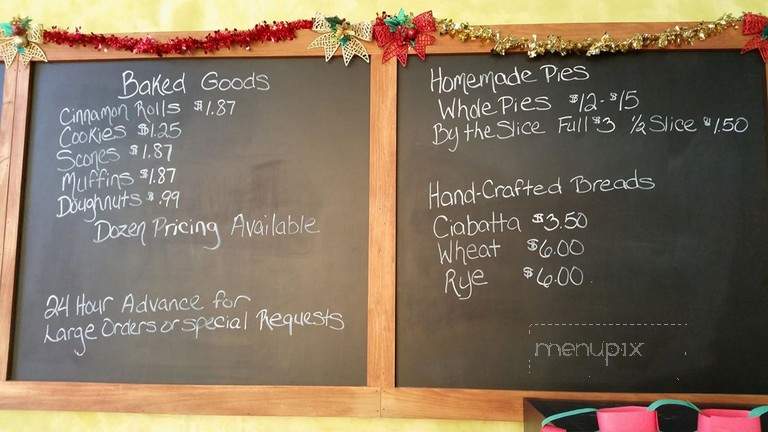 Baked Goods
Cinnamon Rolls $1.87
Cookies $1.25
Scones $1.87
Muffins $1.87
Doughnuts $.99
Dozen Pricing Available
24 Hour Advance for
Large Orders or special Requests
Homemade Pies
Whole Pies $12-$15
By the Slice Full $3 1/2 Slice $1.50
Hand-Crafted Breads
Ciabatta $3.50
Wheat $6.00
Rye $6.00
menupix